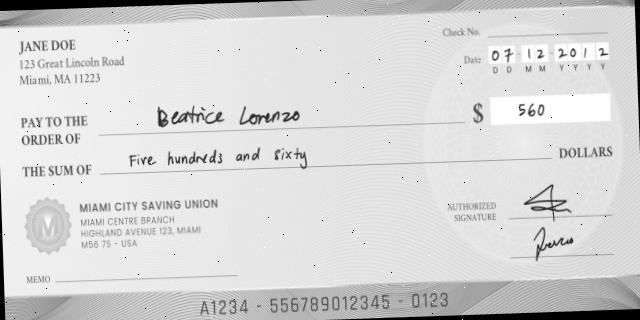 JANE DOE
123 Great Lincoln Road
Miami, MA 11223
Check No.
Date 07 12 2012
D D M M Y Y Y Y
PAY TO THE
ORDER OF Beatrice Lorenzo $ 560
THE SUM OF Five hundreds and sixty DOLLARS
M
MIAMI CITY SAVING UNION
MIAMI CENTRE BRANCH
HIGHLAND AVENUE 123, MIAMI
M56 75 - USA
AUTHORIZED
SIGNATURE
MEMO
A1234 - 556789012345 - 0123